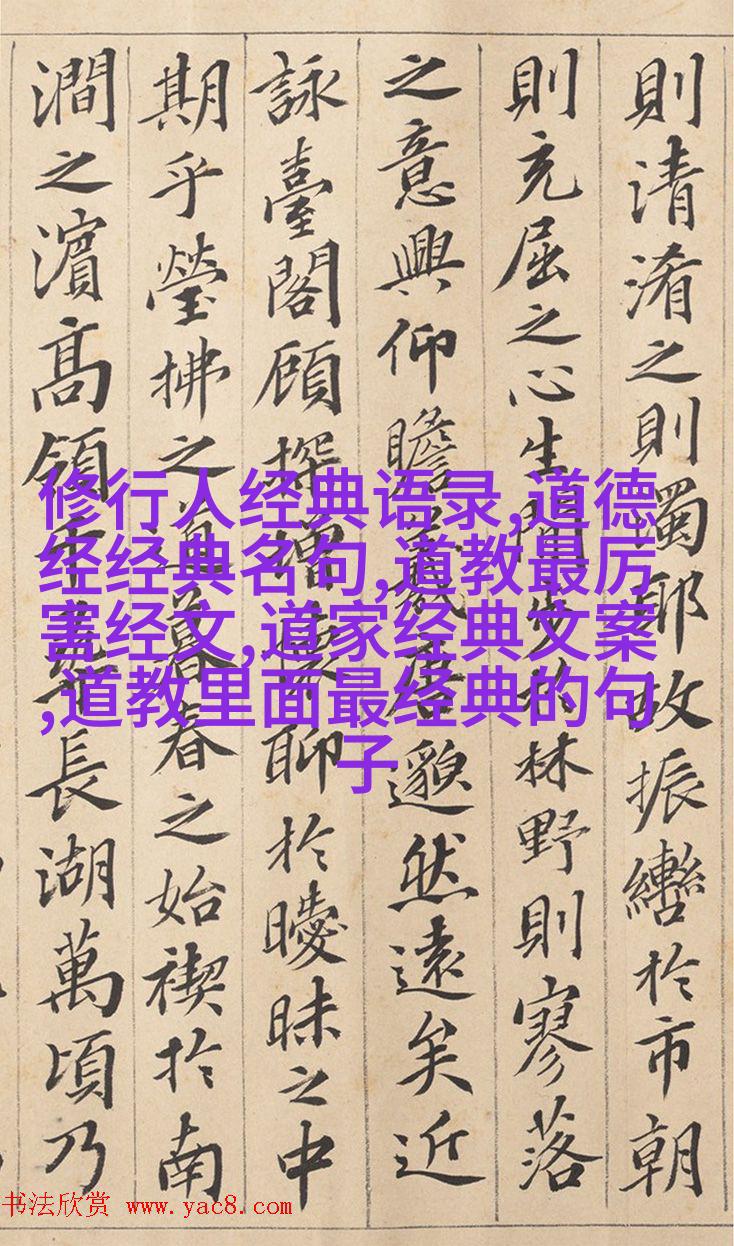 則清淆之則濁耶故振轡於市朝
則充屈之心生閒步於林野則寥落
之意興仰瞻羲唐邈然遠矣近
詠臺閣顧探增懷聊於曖昧之中
期乎瑩拂之道暮春之始禊於南
澗之濱高領千尋長湖萬頃乃
修行人经典语录,道德
经经典名句,道教最厉
害经文,道家经典文案
,道教里面最经典的句
子
书法欣赏 www.yac8.com